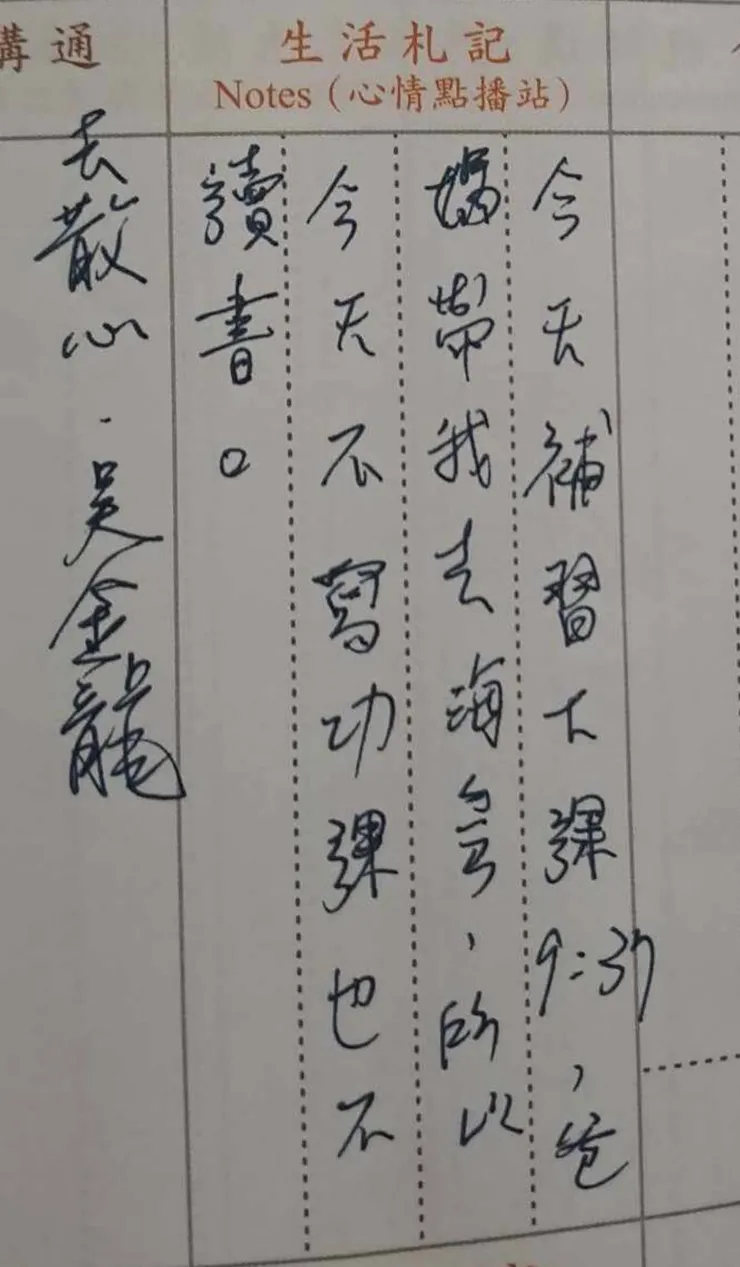 生活札記
Notes（心情點播站）
今天補習下課9:37，爸
媽帶我去海，所以
今天不寫功課也不
讀書。
溝通
去散心．吳金龍